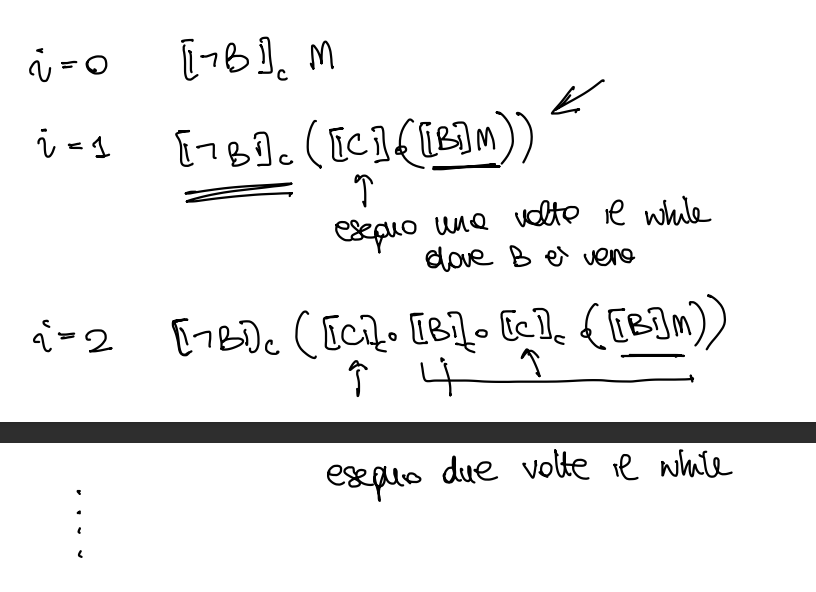 i=0 ⟦¬B⟧c M
i=1 ⟦¬B⟧c (⟦C⟧c(⟦B⟧M))
eseguo una volta il while
dove B è vera
i=2 ⟦¬B⟧c (⟦C⟧c∘⟦B⟧c∘⟦C⟧c(⟦B⟧M))
eseguo due volte il while